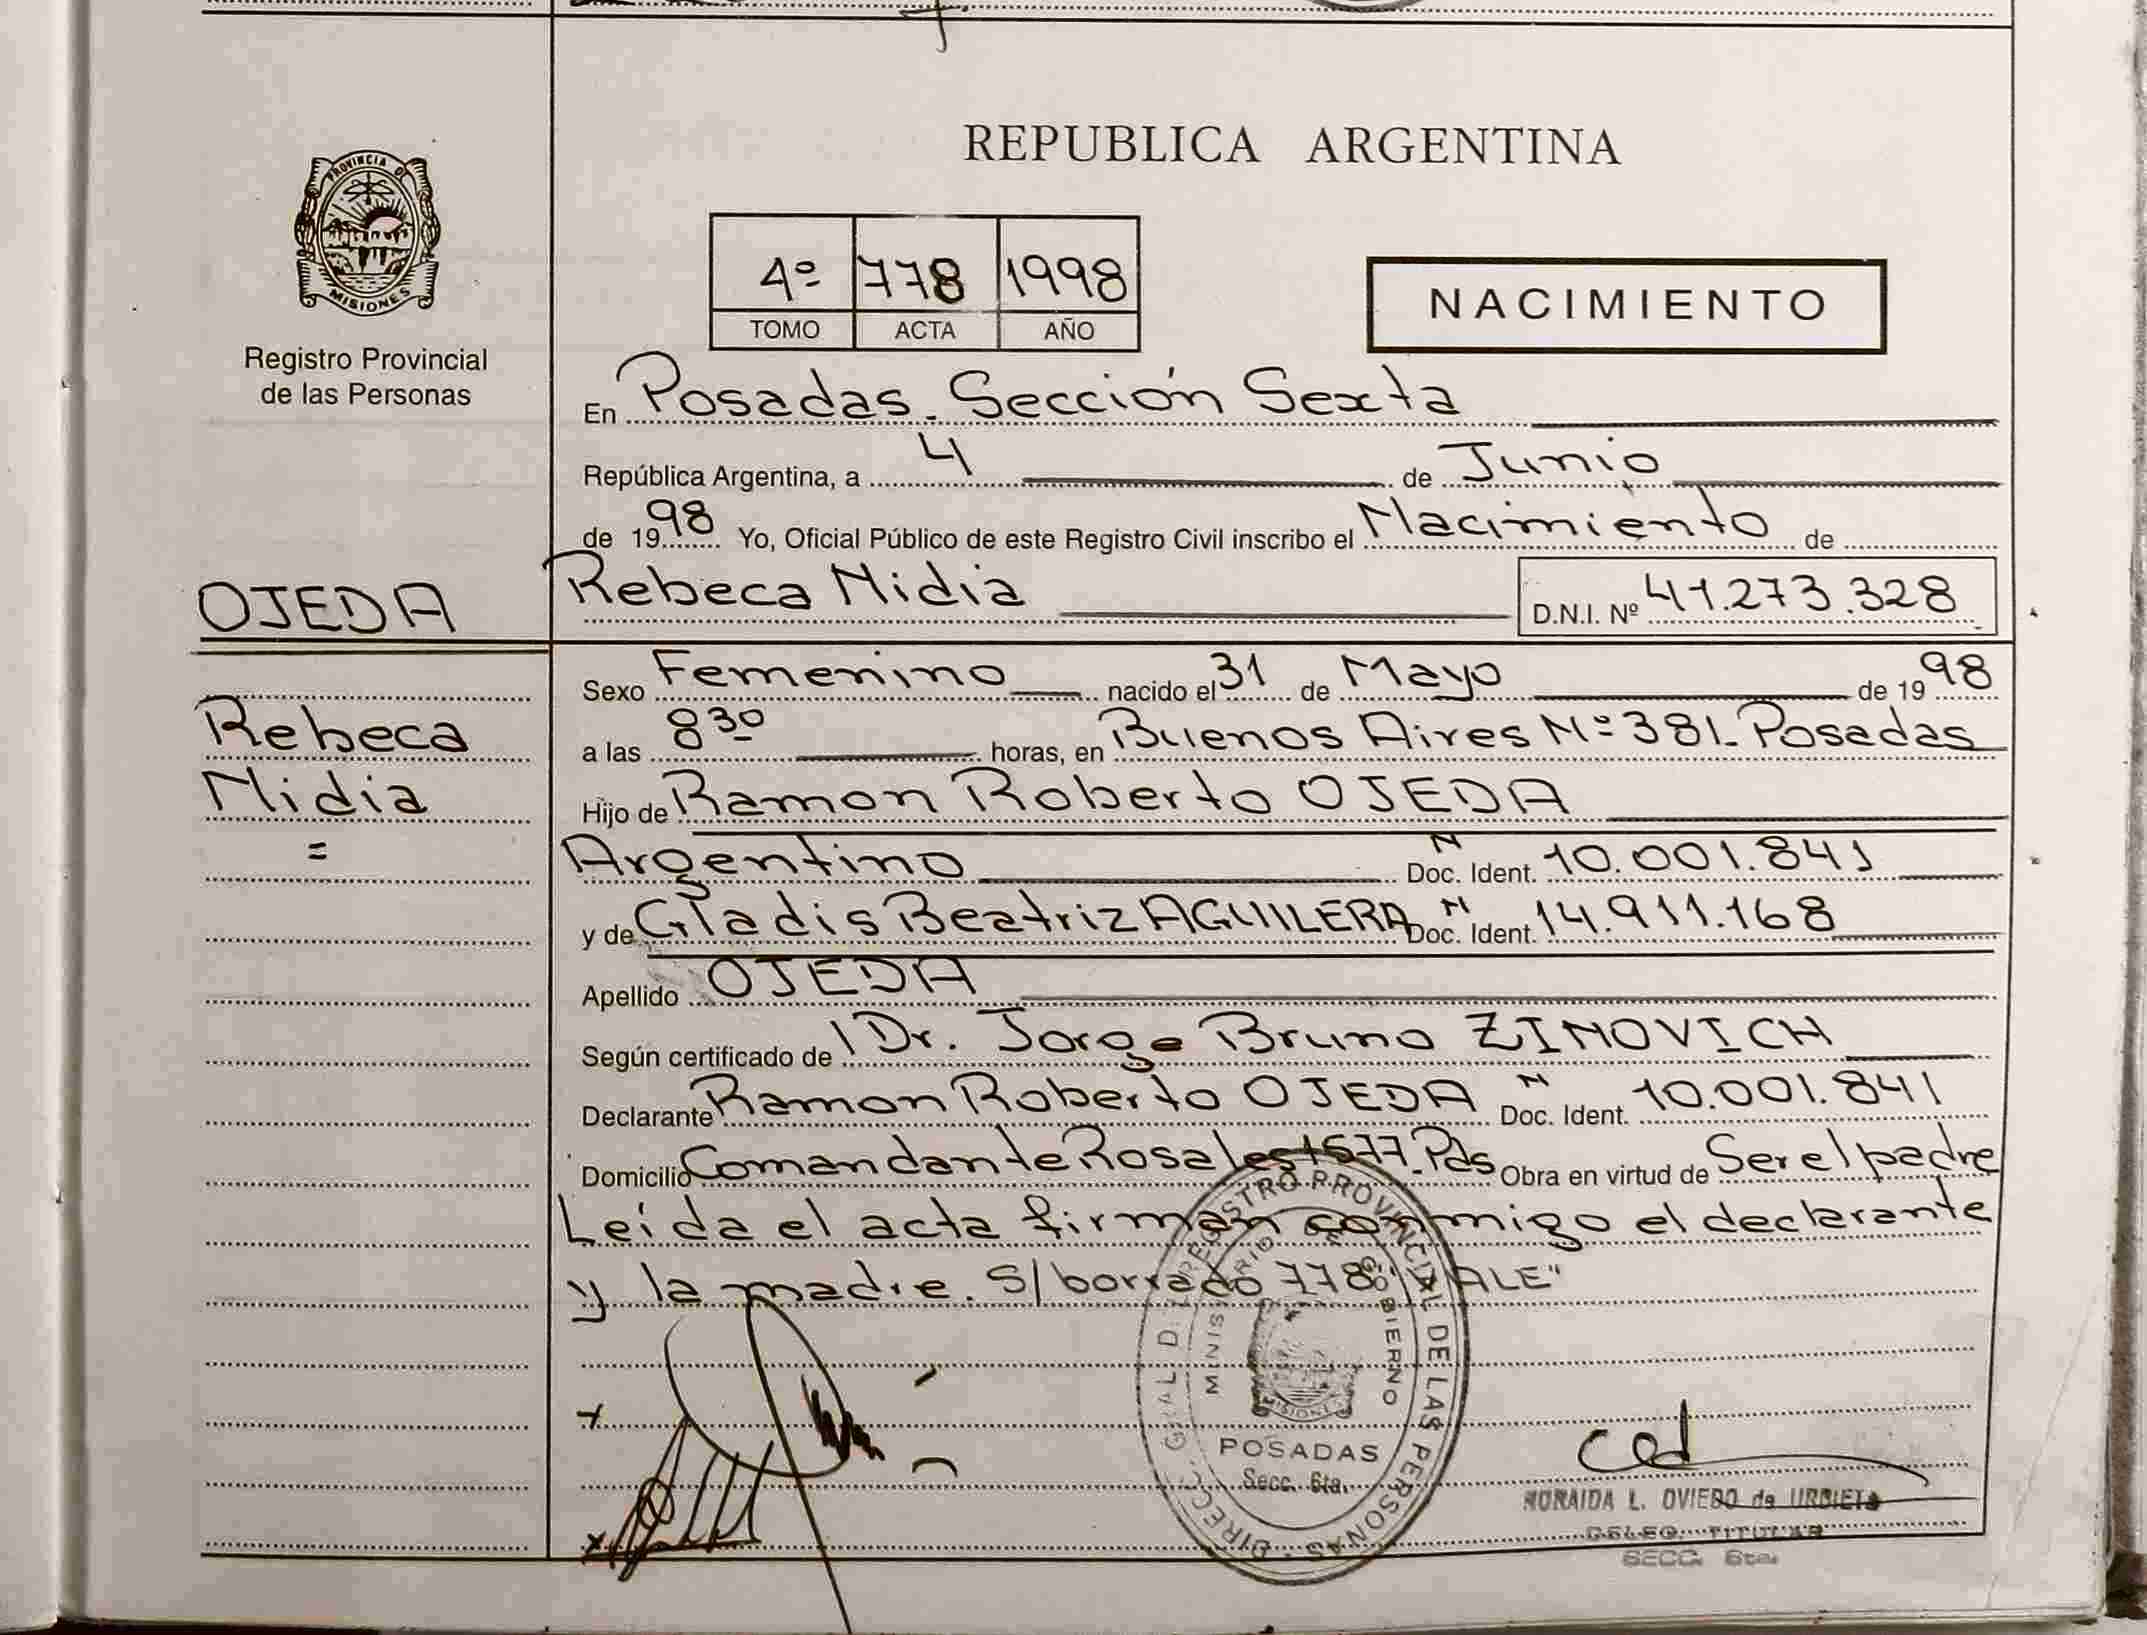 REPUBLICA ARGENTINA
PROVINCIA DE
MISIONES
Registro Provincial
de las Personas
4º 778 1998
TOMO ACTA AÑO
NACIMIENTO
En Posadas. Sección Sexta
República Argentina, a 4 de Junio
de 1998 Yo, Oficial Público de este Registro Civil inscribo el Nacimiento de
OJEDA Rebeca Nidia D.N.I. Nº 41.273.328
Sexo Femenino nacido el 31 de Mayo de 1998
Rebeca a las 8 30 horas, en Buenos Aires Nº 381. Posadas
Nidia Hijo de Ramon Roberto OJEDA
= Argentino N Doc. Ident. 10.001.841
y de Gladis Beatriz AGUILERA N Doc. Ident. 14.911.168
Apellido OJEDA
Según certificado de Dr. Jorge Bruno ZINOVICH
Declarante Ramon Roberto OJEDA N Doc. Ident. 10.001.841
Domicilio Comandante Rosales 1577. Pds Obra en virtud de Ser el padre
Leída el acta firman conmigo el declarante
y la madre. S/borrado 778 "VALE"
DIRECC. GRAL. D. REGISTRO PROVINCIAL DE LAS PERSONAS
MINISTERIO DE GOBIERNO
MISIONES
POSADAS
Secc. 6ta.
NORAIDA L. OVIEDO de URBIETA
DELEG. TITULAR
SECC. 6ta.